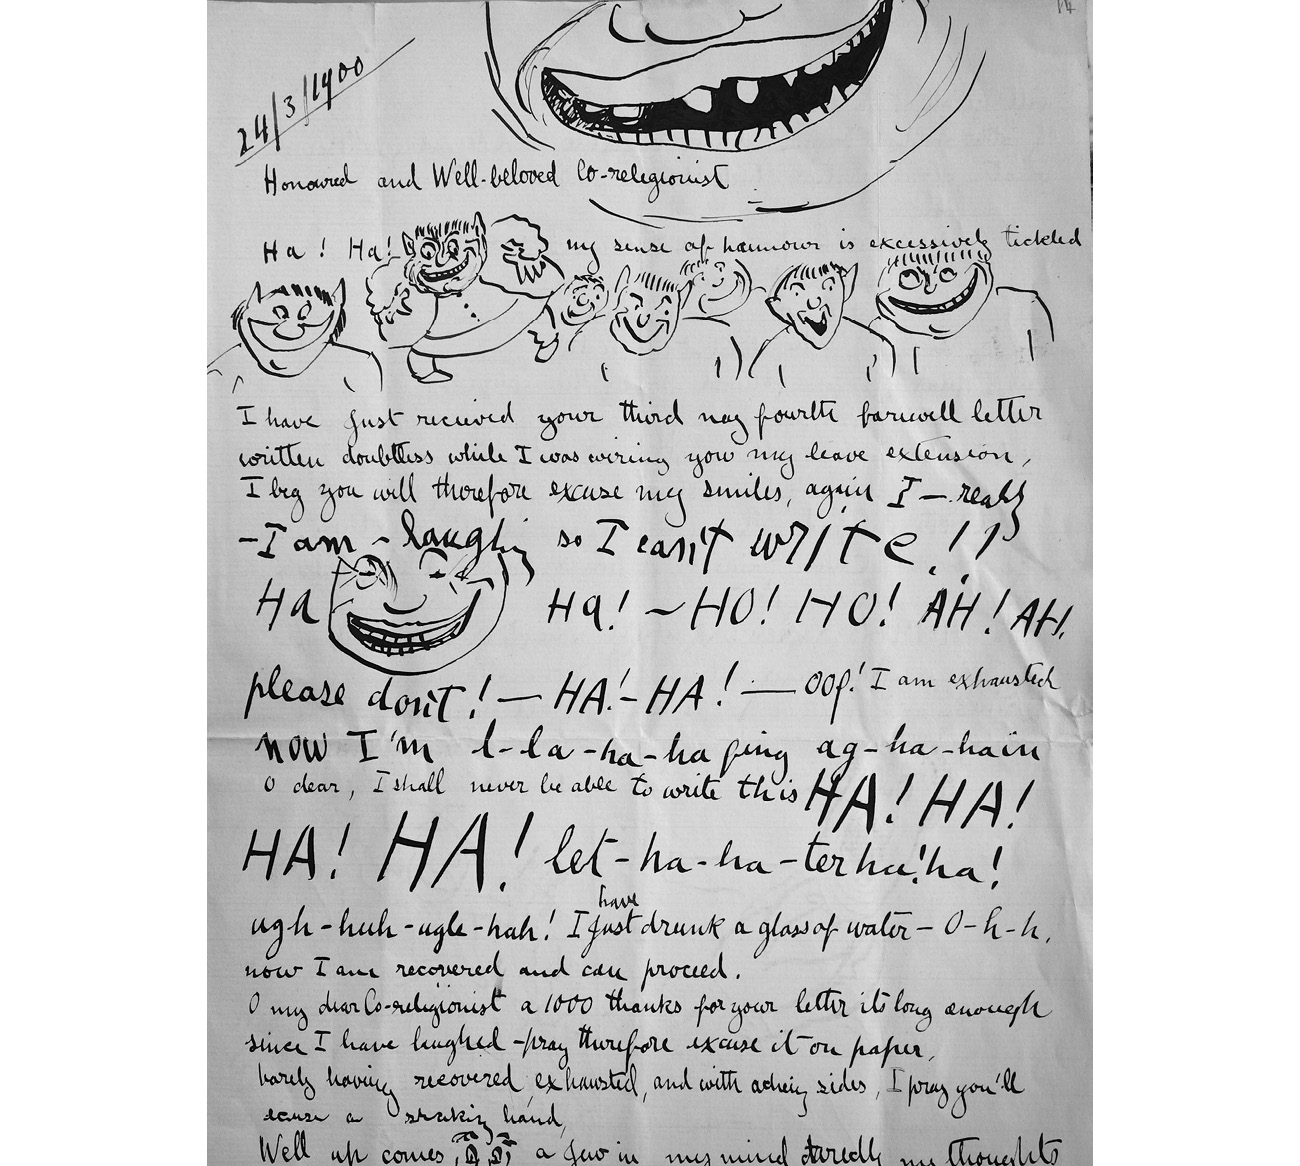 24/3/1900
Honoured and Well-beloved Co-religionist
Ha! Ha! my sense of hannour is excessively tickled
I have just recieved your third nay fourth farwell letter
written doubtless while I was wiring you my leave extension,
I beg you will therefore excuse my smiles, again I — really
- I am - laughing so I can't write!!
Ha Ha! ~ HO! HO! AH! AH.
please don't! — HA! - HA! — OOF! I am exhausted
now I'm l-la-ha-ha fing ag-ha-hain
O dear, I shall never be able to write this HA! HA!
HA! HA! let-ha-ha-ter ha! ha!
ugh-huh-ugh-hah! I have just drunk a glass of water — O-h-h,
now I am recovered and can proceed.
O my dear Co-religionist a 1000 thanks for your letter its long enough
since I have laughed - pray therefore excuse it on paper,
barely having recovered, exhausted, and with aching sides, I pray you'll
a shaking hand,
Well up comes a in my mind my thoughts